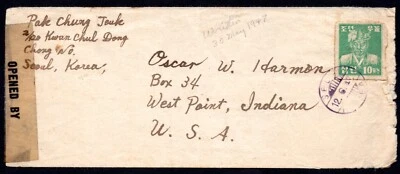 Pak Chung Souk
320 Kwan Chul Dong
Chong No.
Seoul, Korea,
OPENED BY
Oscar W. Harmon
Box 34
West Point, Indiana
U. S. A.
10